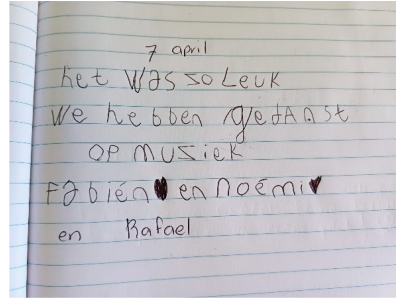 7 april
het was so Leuk
we hebben gedanst
op muziek
Fabién en noémi
en Rafael